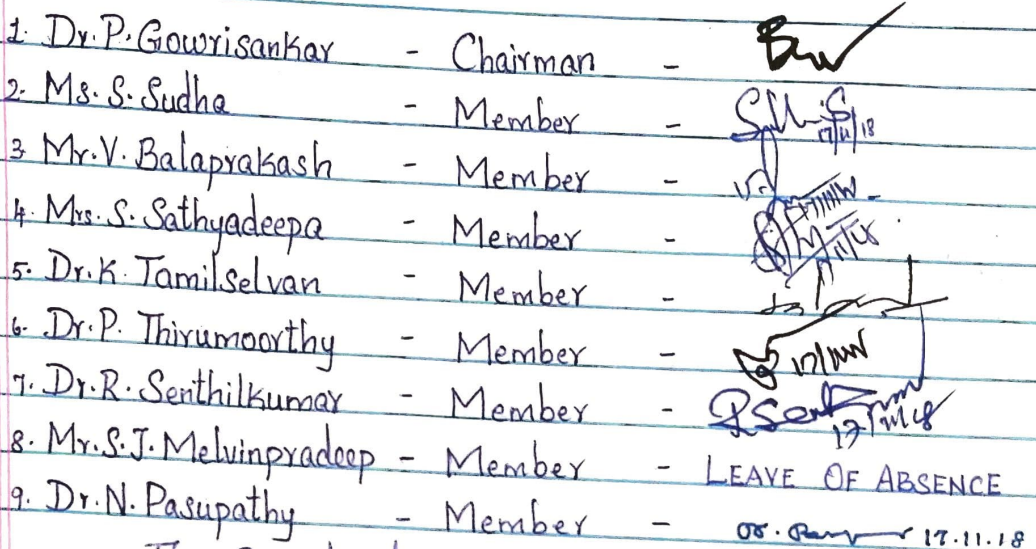 1. Dr. P. Gowrisankar - Chairman -
2. Ms. S. Sudha - Member - 17/11/18
3 Mr. V. Balaprakash - Member -
4. Mrs. S. Sathyadeepa - Member -
5. Dr. K. Tamilselvan - Member -
6. Dr. P. Thirumoorthy - Member -
7. Dr. R. Senthilkumar - Member -
8. Mr. S. J. Melvinpradeep - Member - LEAVE OF ABSENCE
9. Dr. N. Pasupathy - Member - 17.11.18